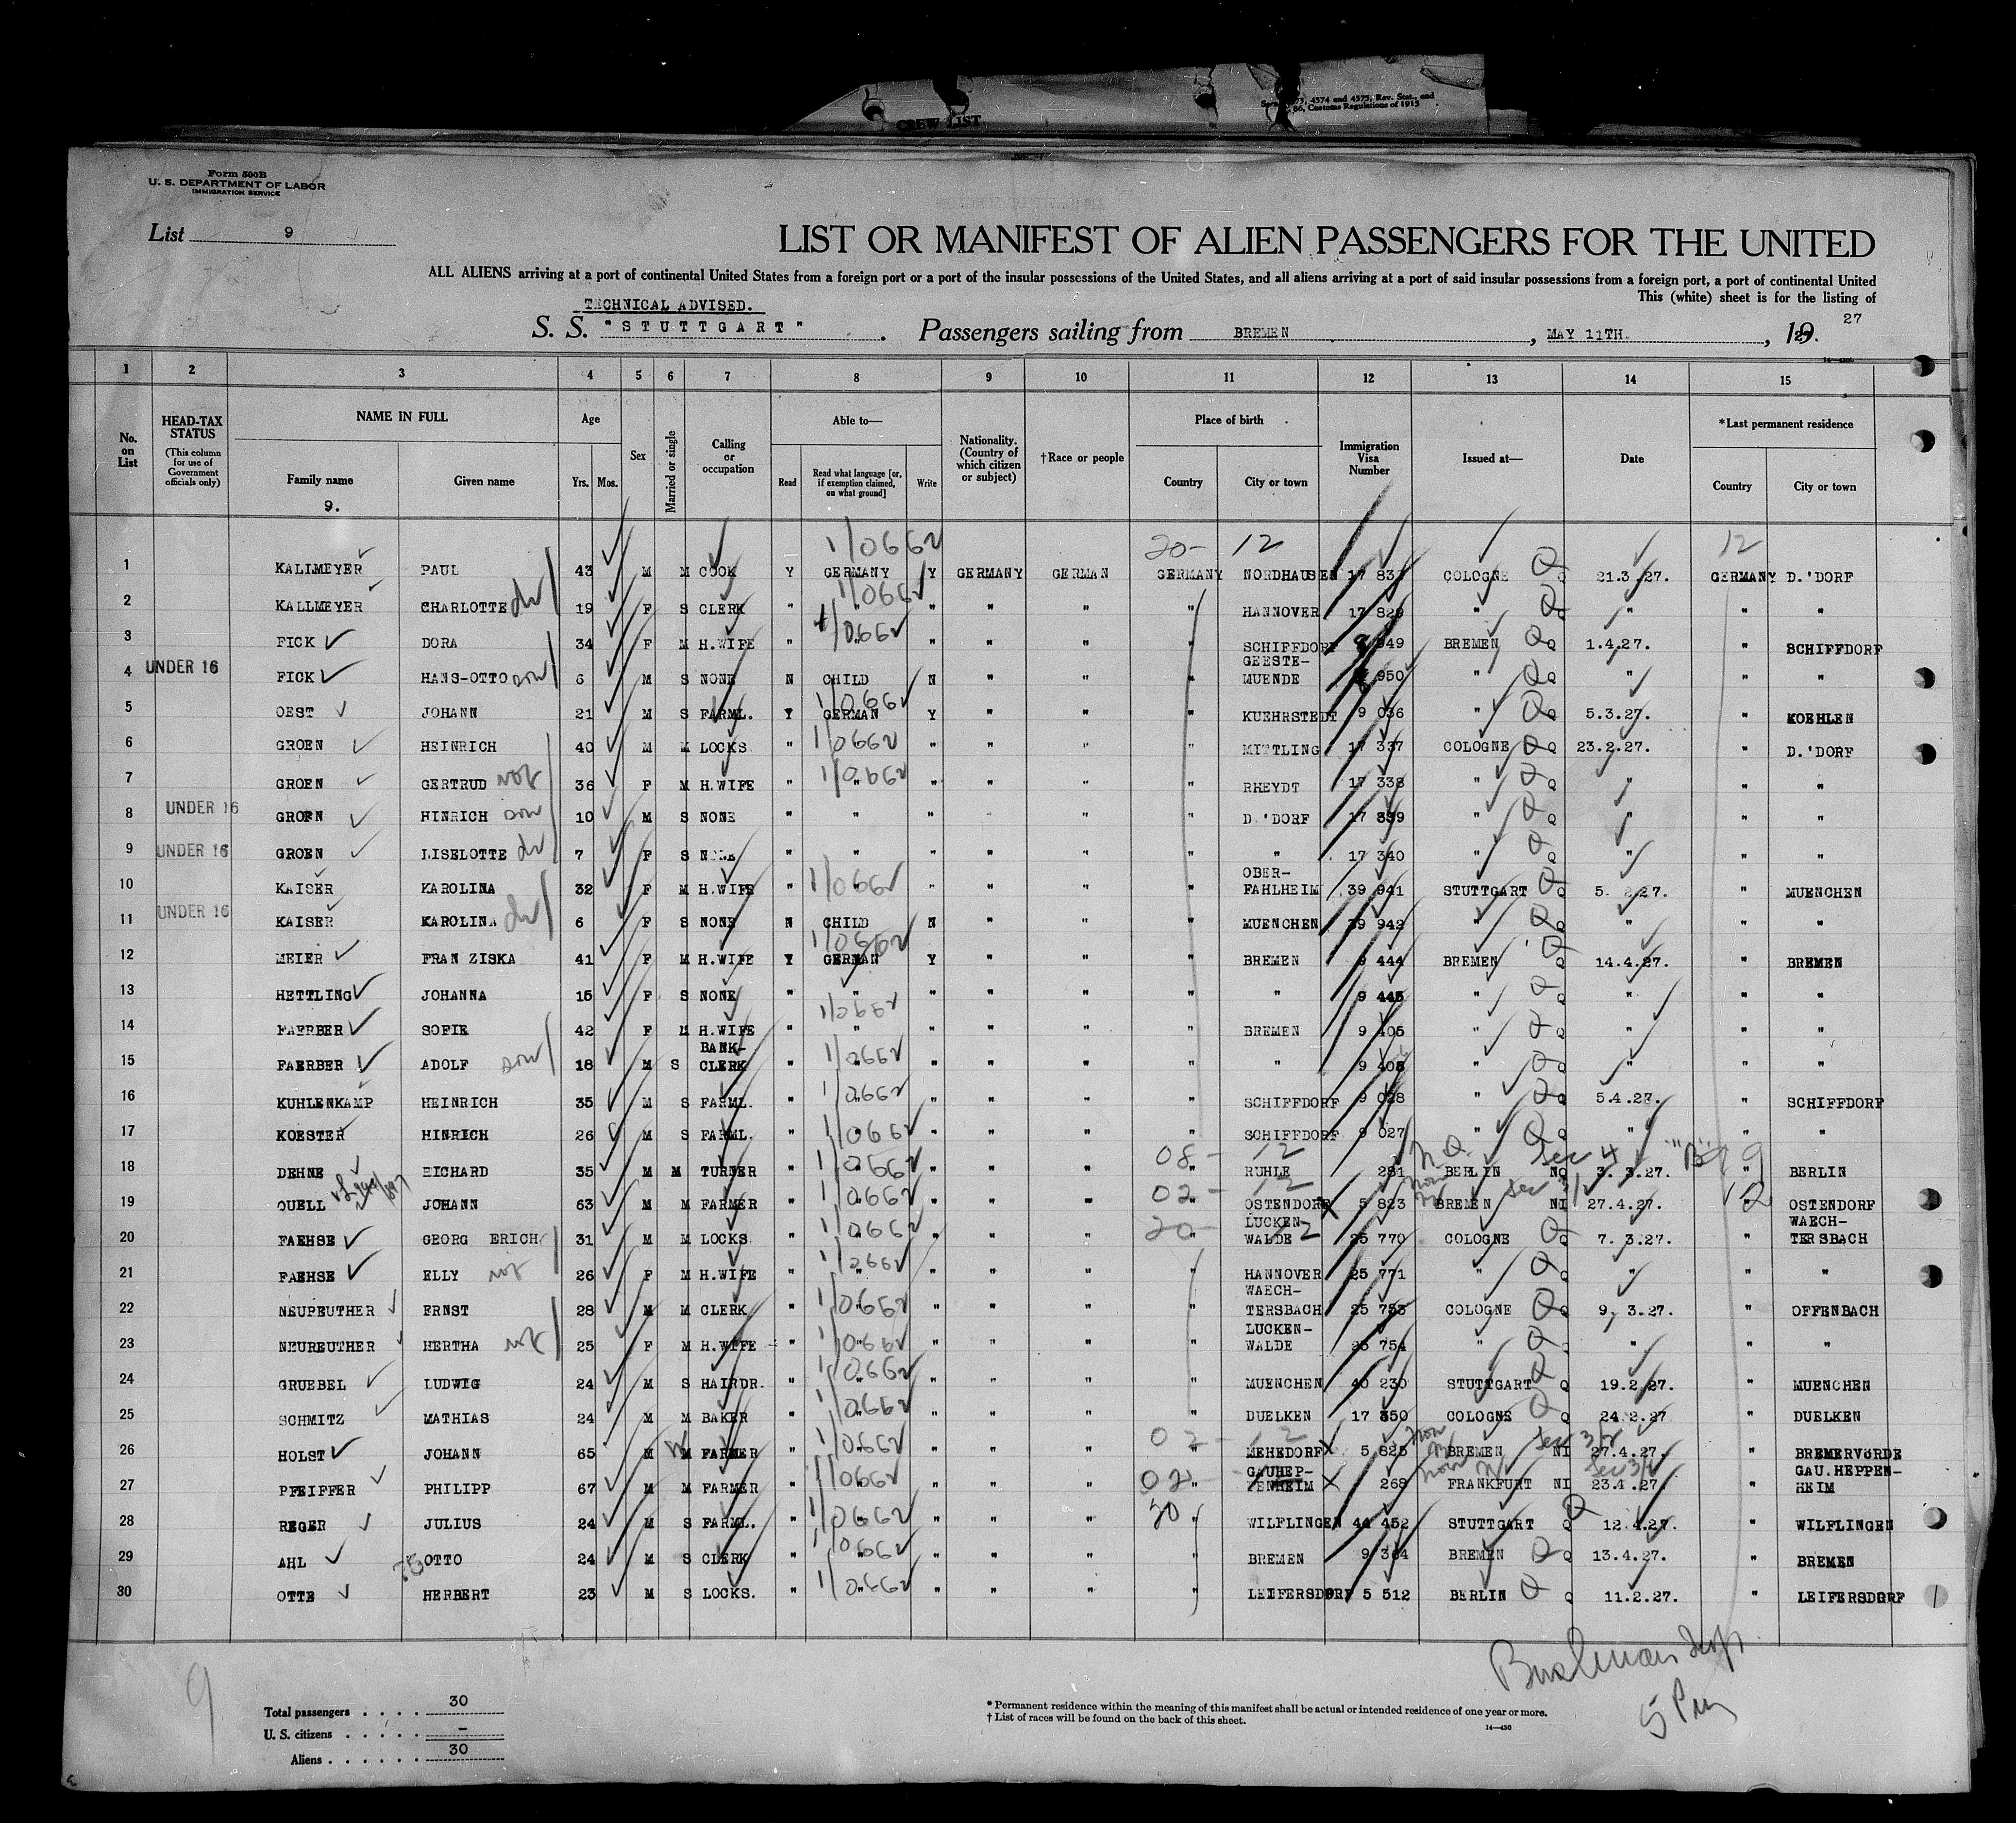 CREW LIST
4374 and 4375, Rev. Stat., and
86, Customs Regulations of 1915
Form 500B
U. S. DEPARTMENT OF LABOR
IMMIGRATION SERVICE
List 9
LIST OR MANIFEST OF ALIEN PASSENGERS FOR THE UNITED
ALL ALIENS arriving at a port of continental United States from a foreign port or a port of the insular possessions of the United States, and all aliens arriving at a port of said insular possessions from a foreign port, a port of continental United
This (white) sheet is for the listing of
TECHNICAL ADVISED.
S. S. "STUTTGART". Passengers sailing from BREMEN, MAY 11TH., 19 27
1 2 3 4 5 6 7 8 9 10 11 12 13 14 15
No. on List
HEAD-TAX STATUS
(This column for use of Government officials only)
NAME IN FULL
Family name
Given name
9.
Age
Yrs. Mos.
Sex
Married or single
Calling or occupation
Able to—
Read
Read what language [or, if exemption claimed, on what ground]
Write
Nationality. (Country of which citizen or subject)
†Race or people
Place of birth
Country
City or town
Immigration Visa Number
Issued at—
Date
*Last permanent residence
Country
City or town
20- 12 12
1 KALLMEYER PAUL 43 M M COOK Y GERMANY Y GERMANY GERMAN GERMANY NORDHAUSEN 17 COLOGNE Q 21.3.27. GERMANY D.'DORF
2 KALLMEYER CHARLOTTE 19 F S CLERK " " " " " " HANNOVER 17 829 " Q " " "
3 FICK DORA 34 F M H.WIFE " " " " " " SCHIFFDORF 949 BREMEN Q 1.4.27. " SCHIFFDORF
4 UNDER 16 FICK HANS-OTTO son 6 M S NONE N CHILD N " " " GEESTE-MUENDE 950 " Q " " "
5 OEST JOHANN 21 M S FARML. Y GERMAN Y " " " KUEHRSTEDT 9 036 " Q 5.3.27. " KOEHLEN
6 GROEN HEINRICH 40 M M LOCKS " " " " " MITTLING 17 337 COLOGNE Q 23.2.27. " D.'DORF
7 GROEN GERTRUD 36 F M H.WIFE " " " " " " RHEYDT 17 338 " Q " " "
8 UNDER 16 GROEN HINRICH son 10 M S NONE " " " " " D.'DORF 17 339 " Q " " "
9 UNDER 16 GROEN LISELOTTE 7 F S NONE " " " " " " " 17 340 " Q " " "
10 KAISER KAROLINA 32 F M H.WIFE " " " " " OBER-FAHLHEIM 39 941 STUTTGART Q 5. 27. " MUENCHEN
11 UNDER 16 KAISER KAROLINA 6 F S NONE N CHILD N " " " MUENCHEN 39 942 " Q " " "
12 MEIER FRANZISKA 41 F M H.WIFE Y GERMAN Y " " " BREMEN 9 444 BREMEN Q 14.4.27. " BREMEN
13 HETTLING JOHANNA 15 F S NONE " " " " " " " 9 445 " Q " " "
14 FAERBER SOFIE 42 F M H.WIFE " " " " " " BREMEN 9 405 " Q " " "
15 FAERBER ADOLF son 18 M S BANK-CLERK " " " " " " " 9 " Q " " "
16 KUHLENKAMP HEINRICH 35 M S FARML. " " " " " " SCHIFFDORF 9 028 " Q 5.4.27. " SCHIFFDORF
17 KOESTER HINRICH 26 M S FARML. " " " " " " SCHIFFDORF 9 027 " Q " " "
08- 12
18 DEHNE RICHARD 35 M M TURNER " " " " " " RUHLE 281 BERLIN NQ Sec 4 3. 3.27. " BERLIN
02- 12
19 QUELL JOHANN 63 M M FARMER " " " " " OSTENDORF X 5 823 BREMEN NI 27.4.27. 12 OSTENDORF
20-
20 FAEHSE GEORG ERICH 31 M M LOCKS " " " " " " LUCKEN-WALDE 12 25 770 COLOGNE Q 7. 3.27. " WAECH-TERSBACH
21 FAEHSE ELLY 26 F M H.WIFE " " " " " " HANNOVER 25 771 " Q " " "
22 NEUREUTHER ERNST 28 M M CLERK " " " " " " WAECH-TERSBACH 25 753 COLOGNE Q 9. 3.27. " OFFENBACH
23 NEUREUTHER HERTHA 25 F M H.WIFE " " " " " " LUCKEN-WALDE 25 754 " Q " " "
24 GRUEBEL LUDWIG 24 M S HAIRDR. " " " " " " MUENCHEN 40 230 STUTTGART Q 19.2.27. " MUENCHEN
25 SCHMITZ MATHIAS 24 M M BAKER " " " " " " DUELKEN 17 350 COLOGNE Q 24 2.27 " DUELKEN
02- 12
26 HOLST JOHANN 65 M M FARMER " " " " " " MEHEDORF X 5 825 BREMEN NI 27.4.27. " BREMERVÖRDE
02-
27 PFEIFFER PHILIPP 67 M M FARMER " " " " " GAUHEP-PENHEIM X 268 FRANKFURT NI 23.4.27. " GAU.HEPPEN-HEIM
20
28 REGER JULIUS 24 M S FARML. " " " " " " WILFLINGEN 44 452 STUTTGART Q 12.4.27. " WILFLINGEN
29 AHL OTTO 24 M S CLERK " " " " " " BREMEN 9 364 BREMEN Q 13.4.27. " BREMEN
30 OTTE HERBERT 23 M S LOCKS. " " " " " " LEIFERSDORF 5 512 BERLIN Q 11.2.27. " LEIFERSDORF
9
Total passengers 30
U. S. citizens -
Aliens 30
* Permanent residence within the meaning of this manifest shall be actual or intended residence of one year or more.
† List of races will be found on the back of this sheet.
14—430